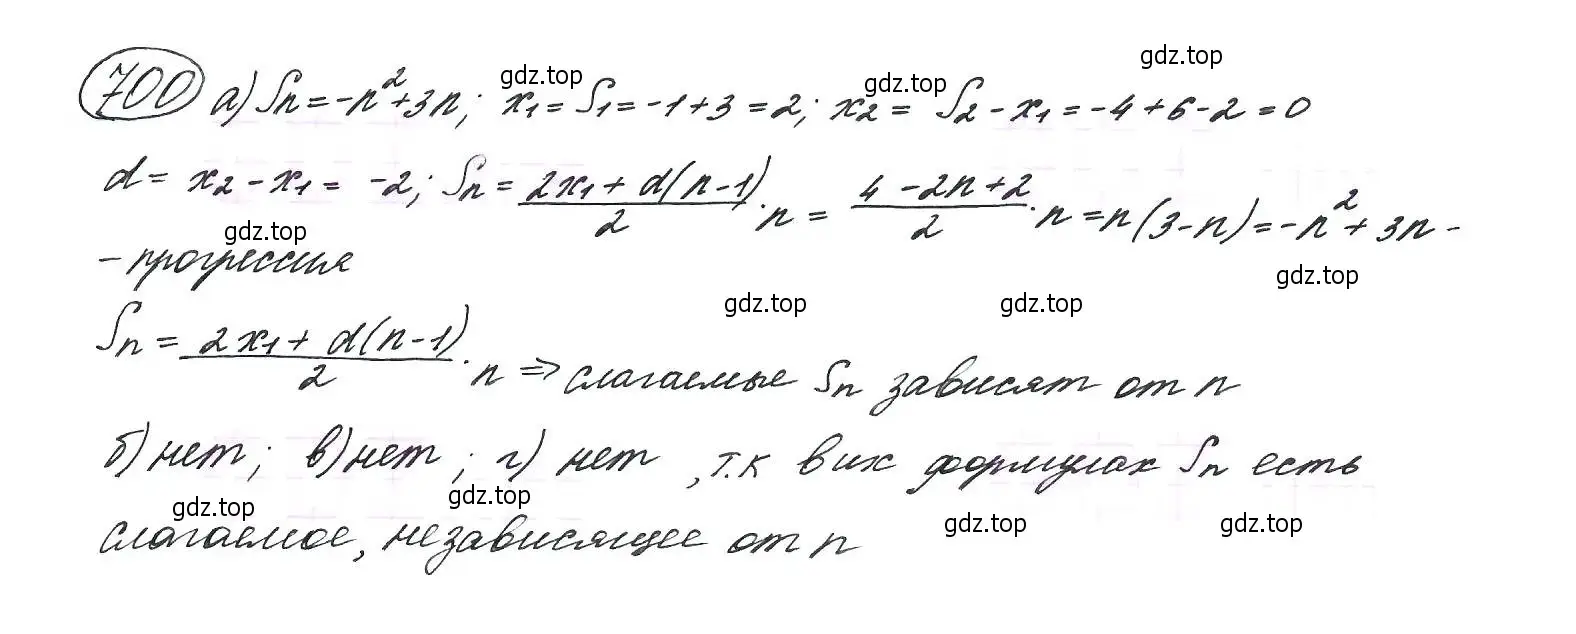 700 а) Sn = -n² + 3n; x₁ = S₁ = -1 + 3 = 2; x₂ = S₂ - x₁ = -4 + 6 - 2 = 0
d = x₂ - x₁ = -2; Sn = (2x₁ + d(n-1))/2 · n = (4 - 2n + 2)/2 · n = n(3-n) = -n² + 3n -
- прогрессия
Sn = (2x₁ + d(n-1))/2 · n => слагаемые Sn зависят от n
б) нет; в) нет; г) нет, т.к в их формулах Sn есть
слагаемое, независящее от n
gdz.top
gdz.top
gdz.top
gdz.top
gdz.top
gdz.top
gdz.top
gdz.top
gdz.top
gdz.top
gdz.top